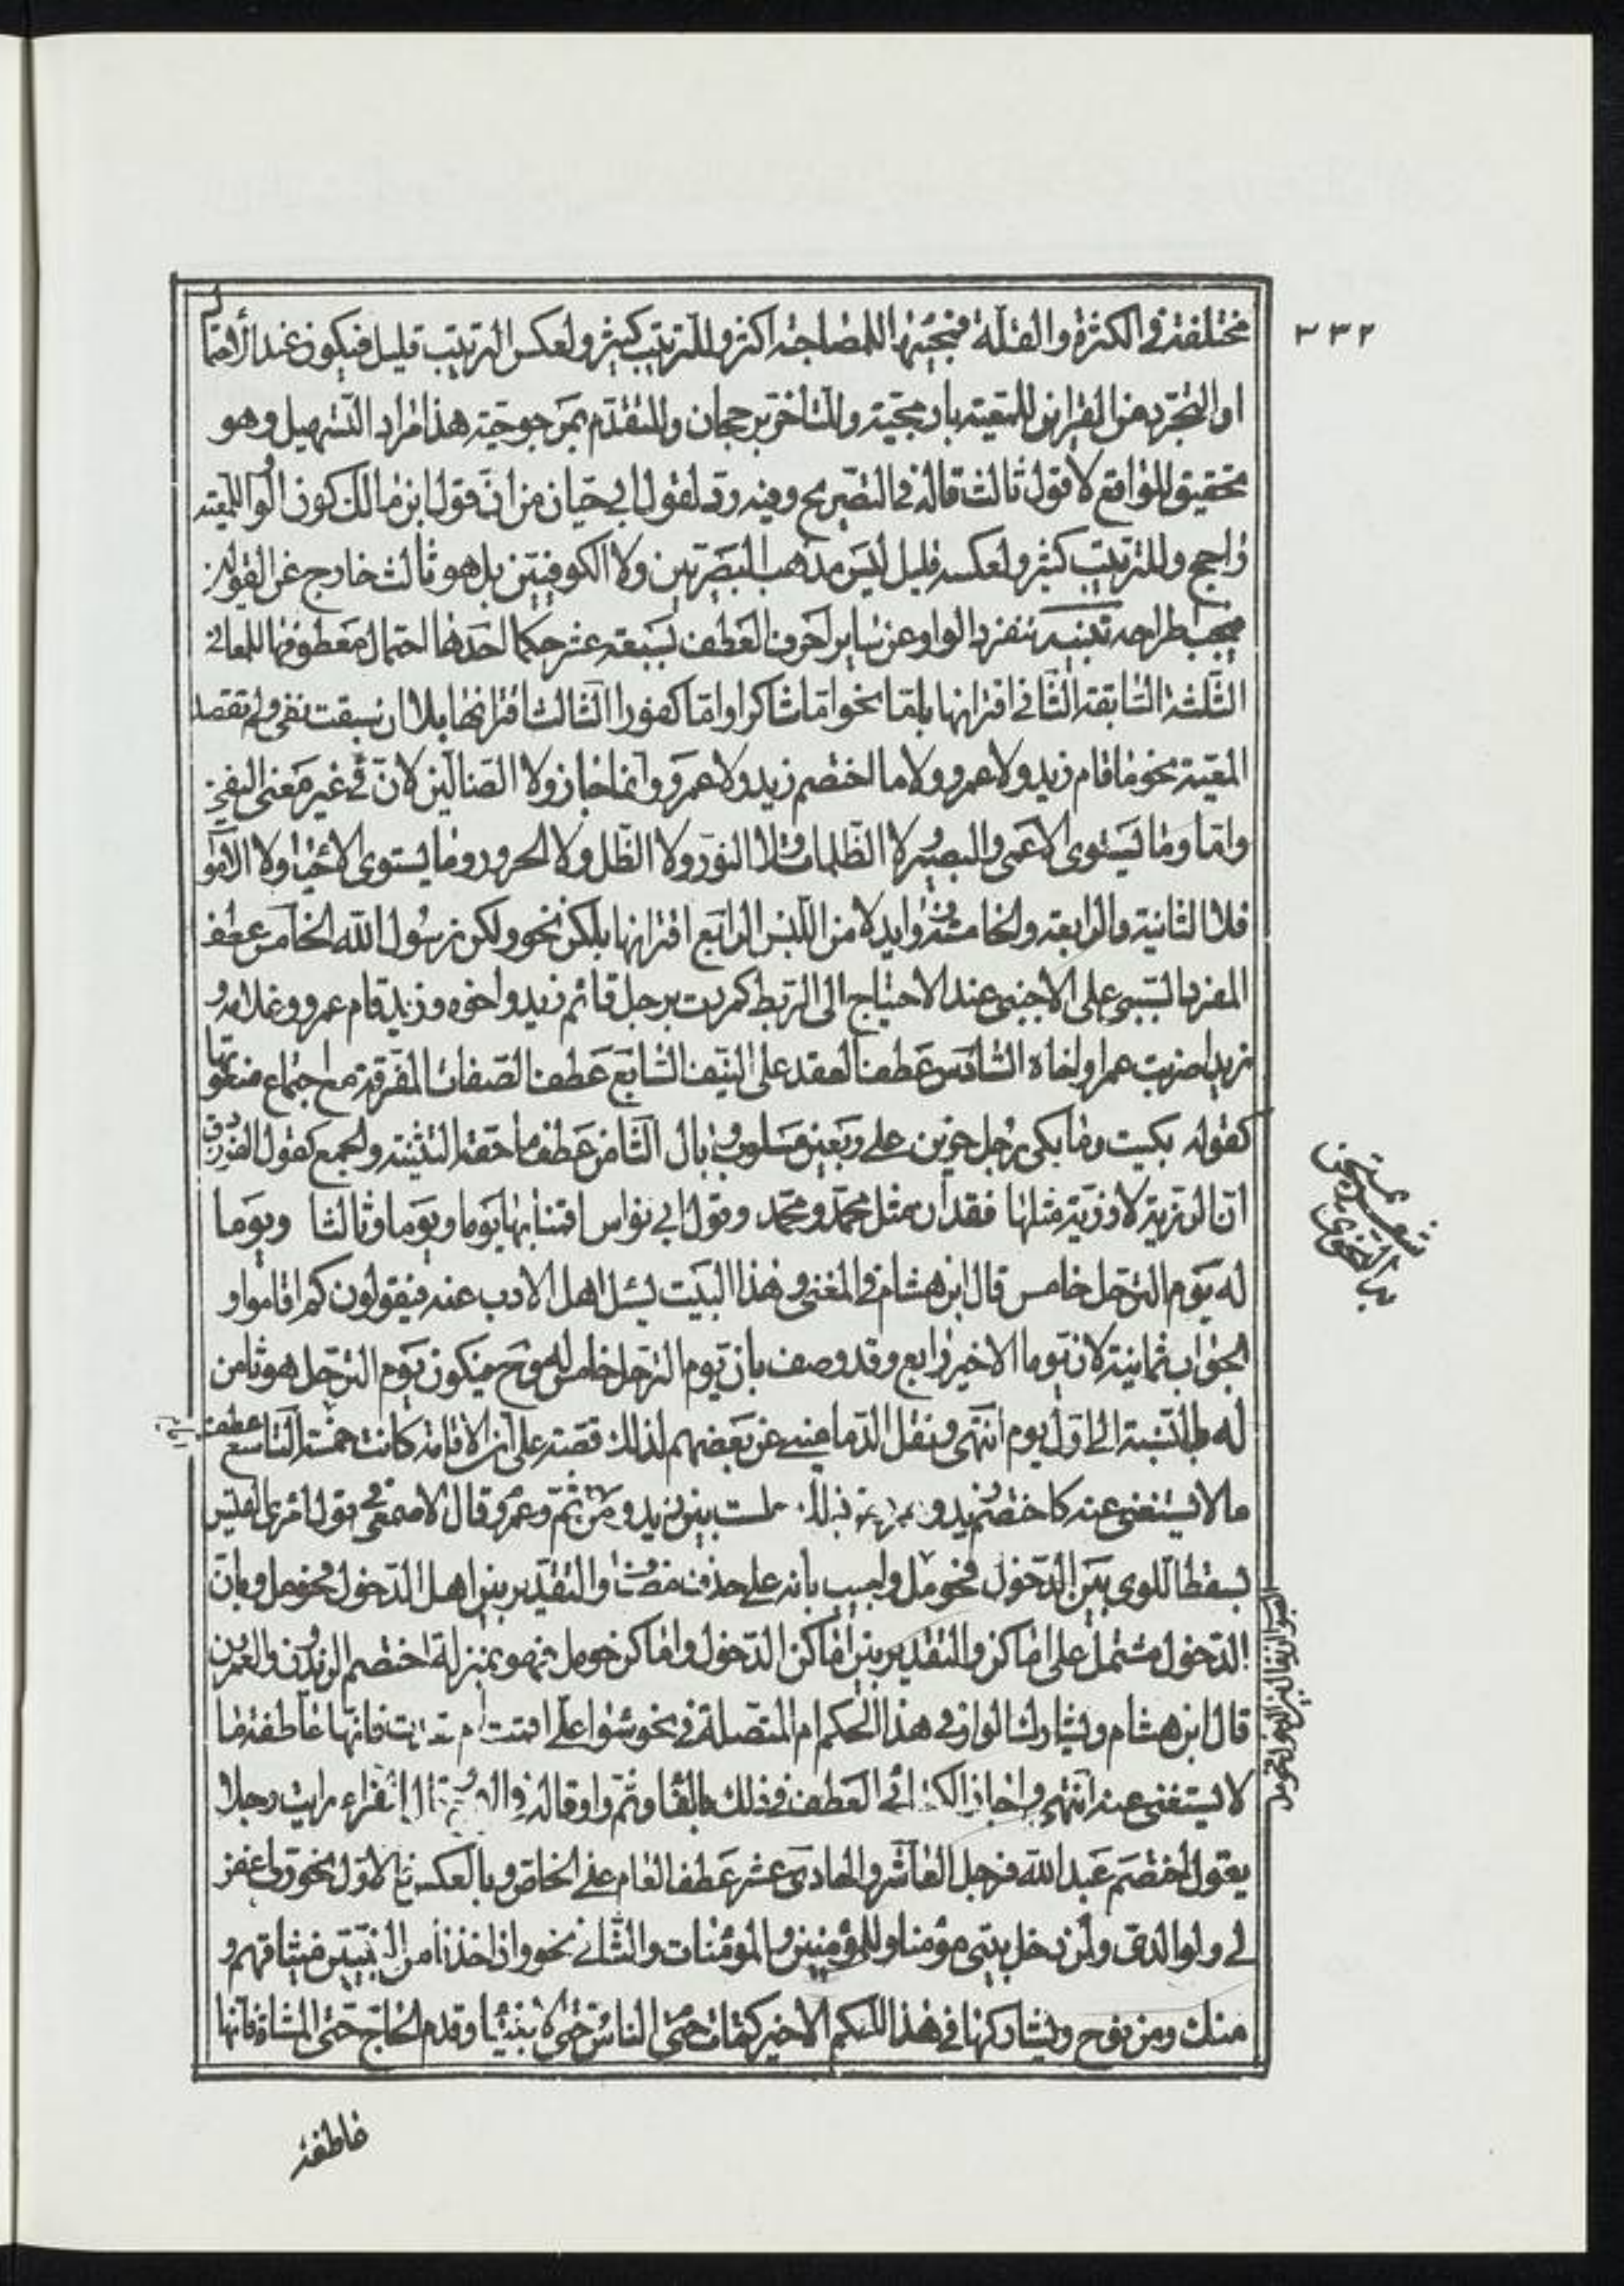 ٣٣٢
مختلفة في الكثرة والقلة فمجيئها للمصاحبة اكثر وللترتيب كثير ولعكس الترتيب قليل فيكون عند
او التجرد عن القراين للمعية بارجحية وللتاخر برجحان وللتقدم بمرجوحية هذا مراد التسهيل وهو
تحقيق للواقع لا قول ثالث قاله في التصريح وفيه رد لقول ابي حيان من ان قول ابن مالك كون الواو للمعية
راجح وللترتيب كثير ولعكسه قليل ليس مذهب البصريين ولا الكوفيين بل هو ثالث خارج عن القولين
يجب طراحه تنبيه تنفرد الواو عن ساير احرف العطف بسبعة عشر حكما احدها احتمال معطوفها للمعاني
الثلثة السابقة الثاني اقترانها باما نحو اما شاكرا واما كفورا الثالث اقترانها بلا ان سبقت بنفي ولم تقصد
المعية نحو ما قام زيد ولا عمرو ولا ما اختصم زيد ولا عمرو وانما جاز ولا الضالين لان في غير معنى النفي
واما وما يستوى الاعمى والبصير ولا الظلمات ولا النور ولا الظل ولا الحرور وما يستوى الاحيا ولا الاموا
فلا الثانية والرابعة والخامسة زوايد لامن اللبس الرابع اقترانها بلكن نحو ولكن رسول الله الخامس عطف
المفرد السببى على الاجنبى عند الاحتياج الى الربط كمررت برجل قائم زيد واخوه وزيد قام عمرو وغلامه و
زيدا ضربت عمرا واخاه السادس عطف العقد على النيف السابع عطف الصفات المفرقة مع اجتماع منعوتها
كقوله بكيت وما بكى رجل حزين على ربعين مسلوب وبال الثامن عطف ما حقه التثنية والجمع كقول الفرزدق
ان الرزية لا رزية مثلها فقدان مثل محمد ومحمد وقول ابي نواس اقمنا بها يوما ويوما وثالثا ويوما
له يوم الترحل خامس قال ابن هشام في المغني وهذا البيت يسئل اهل الادب عنه فيقولون كم اقاموا و
الجواب ثمانية لان يوما الاخير رابع وقد وصف بان يوم الترحل خامس له وح فيكون يوم الترحل هو ثامن
له بالنسبة الى اول يوم انتهى ونقل الدماميني عن بعضهم لذلك قصة على ان الاقامة كانت خمسة التاسع عطف
ما لا يستغنى عنه كاختصم زيد و بين زيد و من ثم وعمرو قال الاصمعي في قول امرئ القيس
بسقط اللوى بين الدخول فحومل واجيب بانه على حذف مضاف والتقدير بين اهل الدخول فحومل وبان
الدخول مشتمل على اماكن والتقدير بين اماكن الدخول واماكن حومل فهو بمنزلة اختصم الزيدون والعمرون
قال ابن هشام ويشارك الواو في هذا الحكم ام المتصلة في نحو سواء على اقمت ام فانها عاطفة ما
لا يستغنى عنه انتهى واجاز الكسائي العطف في ذلك بالفا وثم واو قاله في الفراء رايت رجلا
يقول اختصم عبد الله فرجل العاشر والحادى عشر عطف العام على الخاص وبالعكس فالاول نحو رب اغفر
لي ولوالدى ولمن دخل بيتى مؤمنا وللمؤمنين والمؤمنات والثاني نحو واذ اخذنا من النبيين ميثاقهم و
منك ومن نوح ويشاركها في هذا الحكم الاخير كمات حتى الناس حتى الانبيا وقدم الحاج حتى المشاة فانها
عاطفة